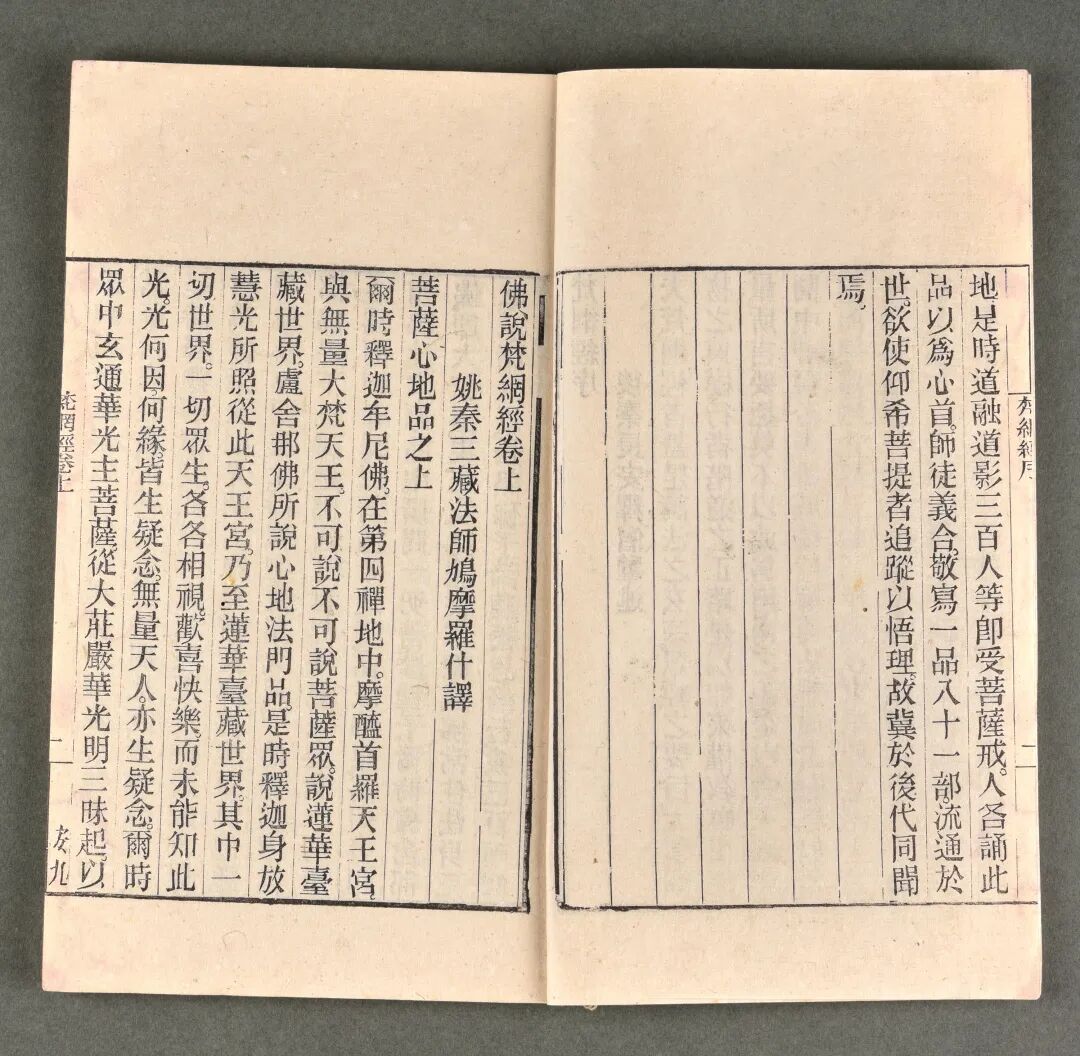 地。是時道融道影三百人等即受菩薩戒。人各誦此
品。以爲心首。師徒義合。敬寫一品八十一部。流通於
世。欲使仰希菩提者追蹤以悟理。故冀於後代同聞
焉。
佛說梵網經卷上
姚秦三藏法師鳩摩羅什譯
菩薩心地品之上
爾時釋迦牟尼佛。在第四禪地中。摩醯首羅天王宮。
與無量大梵天王。不可說不可說菩薩眾。說蓮華臺
藏世界。盧舍那佛所說心地法門品。是時釋迦身放
慧光所照。從此天王宮。乃至蓮華臺藏世界。其中一
切世界。一切眾生。各各相視。歡喜快樂。而未能知此
光。光何因何緣。皆生疑念。無量天人。亦生疑念。爾時
眾中玄通華光主菩薩。從大莊嚴華光明三昧起。以
梵網經卷上
二